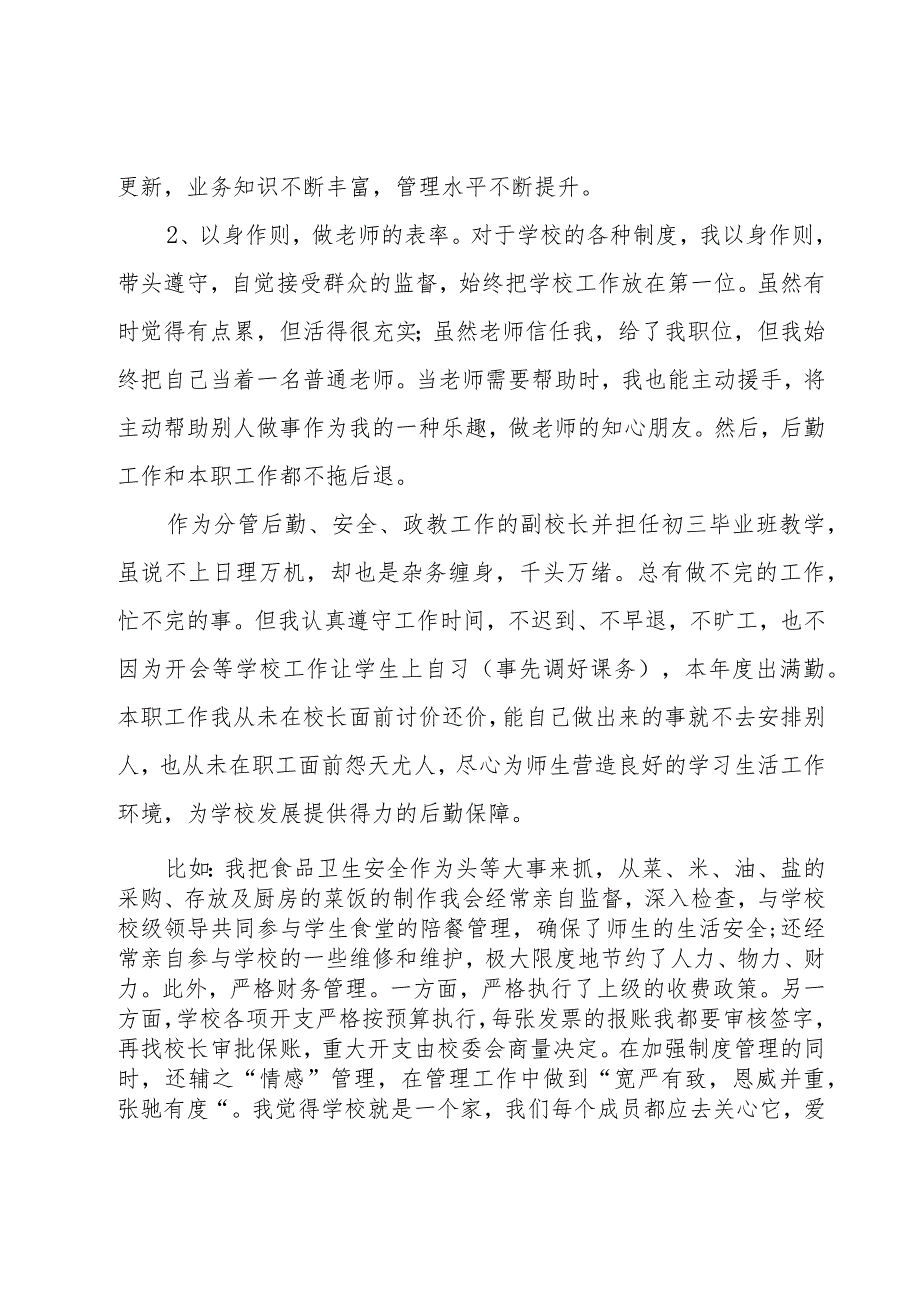 更新，业务知识不断丰富，管理水平不断提升。
2、以身作则，做老师的表率。对于学校的各种制度，我以身作则，
带头遵守，自觉接受群众的监督，始终把学校工作放在第一位。虽然有
时觉得有点累，但活得很充实；虽然老师信任我，给了我职位，但我始
终把自己当着一名普通老师。当老师需要帮助时，我也能主动援手，将
主动帮助别人做事作为我的一种乐趣，做老师的知心朋友。然后，后勤
工作和本职工作都不拖后退。
作为分管后勤、安全、政教工作的副校长并担任初三毕业班教学，
虽说不上日理万机，却也是杂务缠身，千头万绪。总有做不完的工作，
忙不完的事。但我认真遵守工作时间，不迟到、不早退，不旷工，也不
因为开会等学校工作让学生上自习（事先调好课务），本年度出满勤。
本职工作我从未在校长面前讨价还价，能自己做出来的事就不去安排别
人，也从未在职工面前怨天尤人，尽心为师生营造良好的学习生活工作
环境，为学校发展提供得力的后勤保障。
比如：我把食品卫生安全作为头等大事来抓，从菜、米、油、盐的
采购、存放及厨房的菜饭的制作我会经常亲自监督，深入检查，与学校
校级领导共同参与学生食堂的陪餐管理，确保了师生的生活安全;还经
常亲自参与学校的一些维修和维护，极大限度地节约了人力、物力、财
力。此外，严格财务管理。一方面，严格执行了上级的收费政策。另一
方面，学校各项开支严格按预算执行，每张发票的报账我都要审核签字，
再找校长审批保账，重大开支由校委会商量决定。在加强制度管理的同
时，还辅之“情感”管理，在管理工作中做到“宽严有致，恩威并重，
张驰有度“。我觉得学校就是一个家，我们每个成员都应去关心它，爱